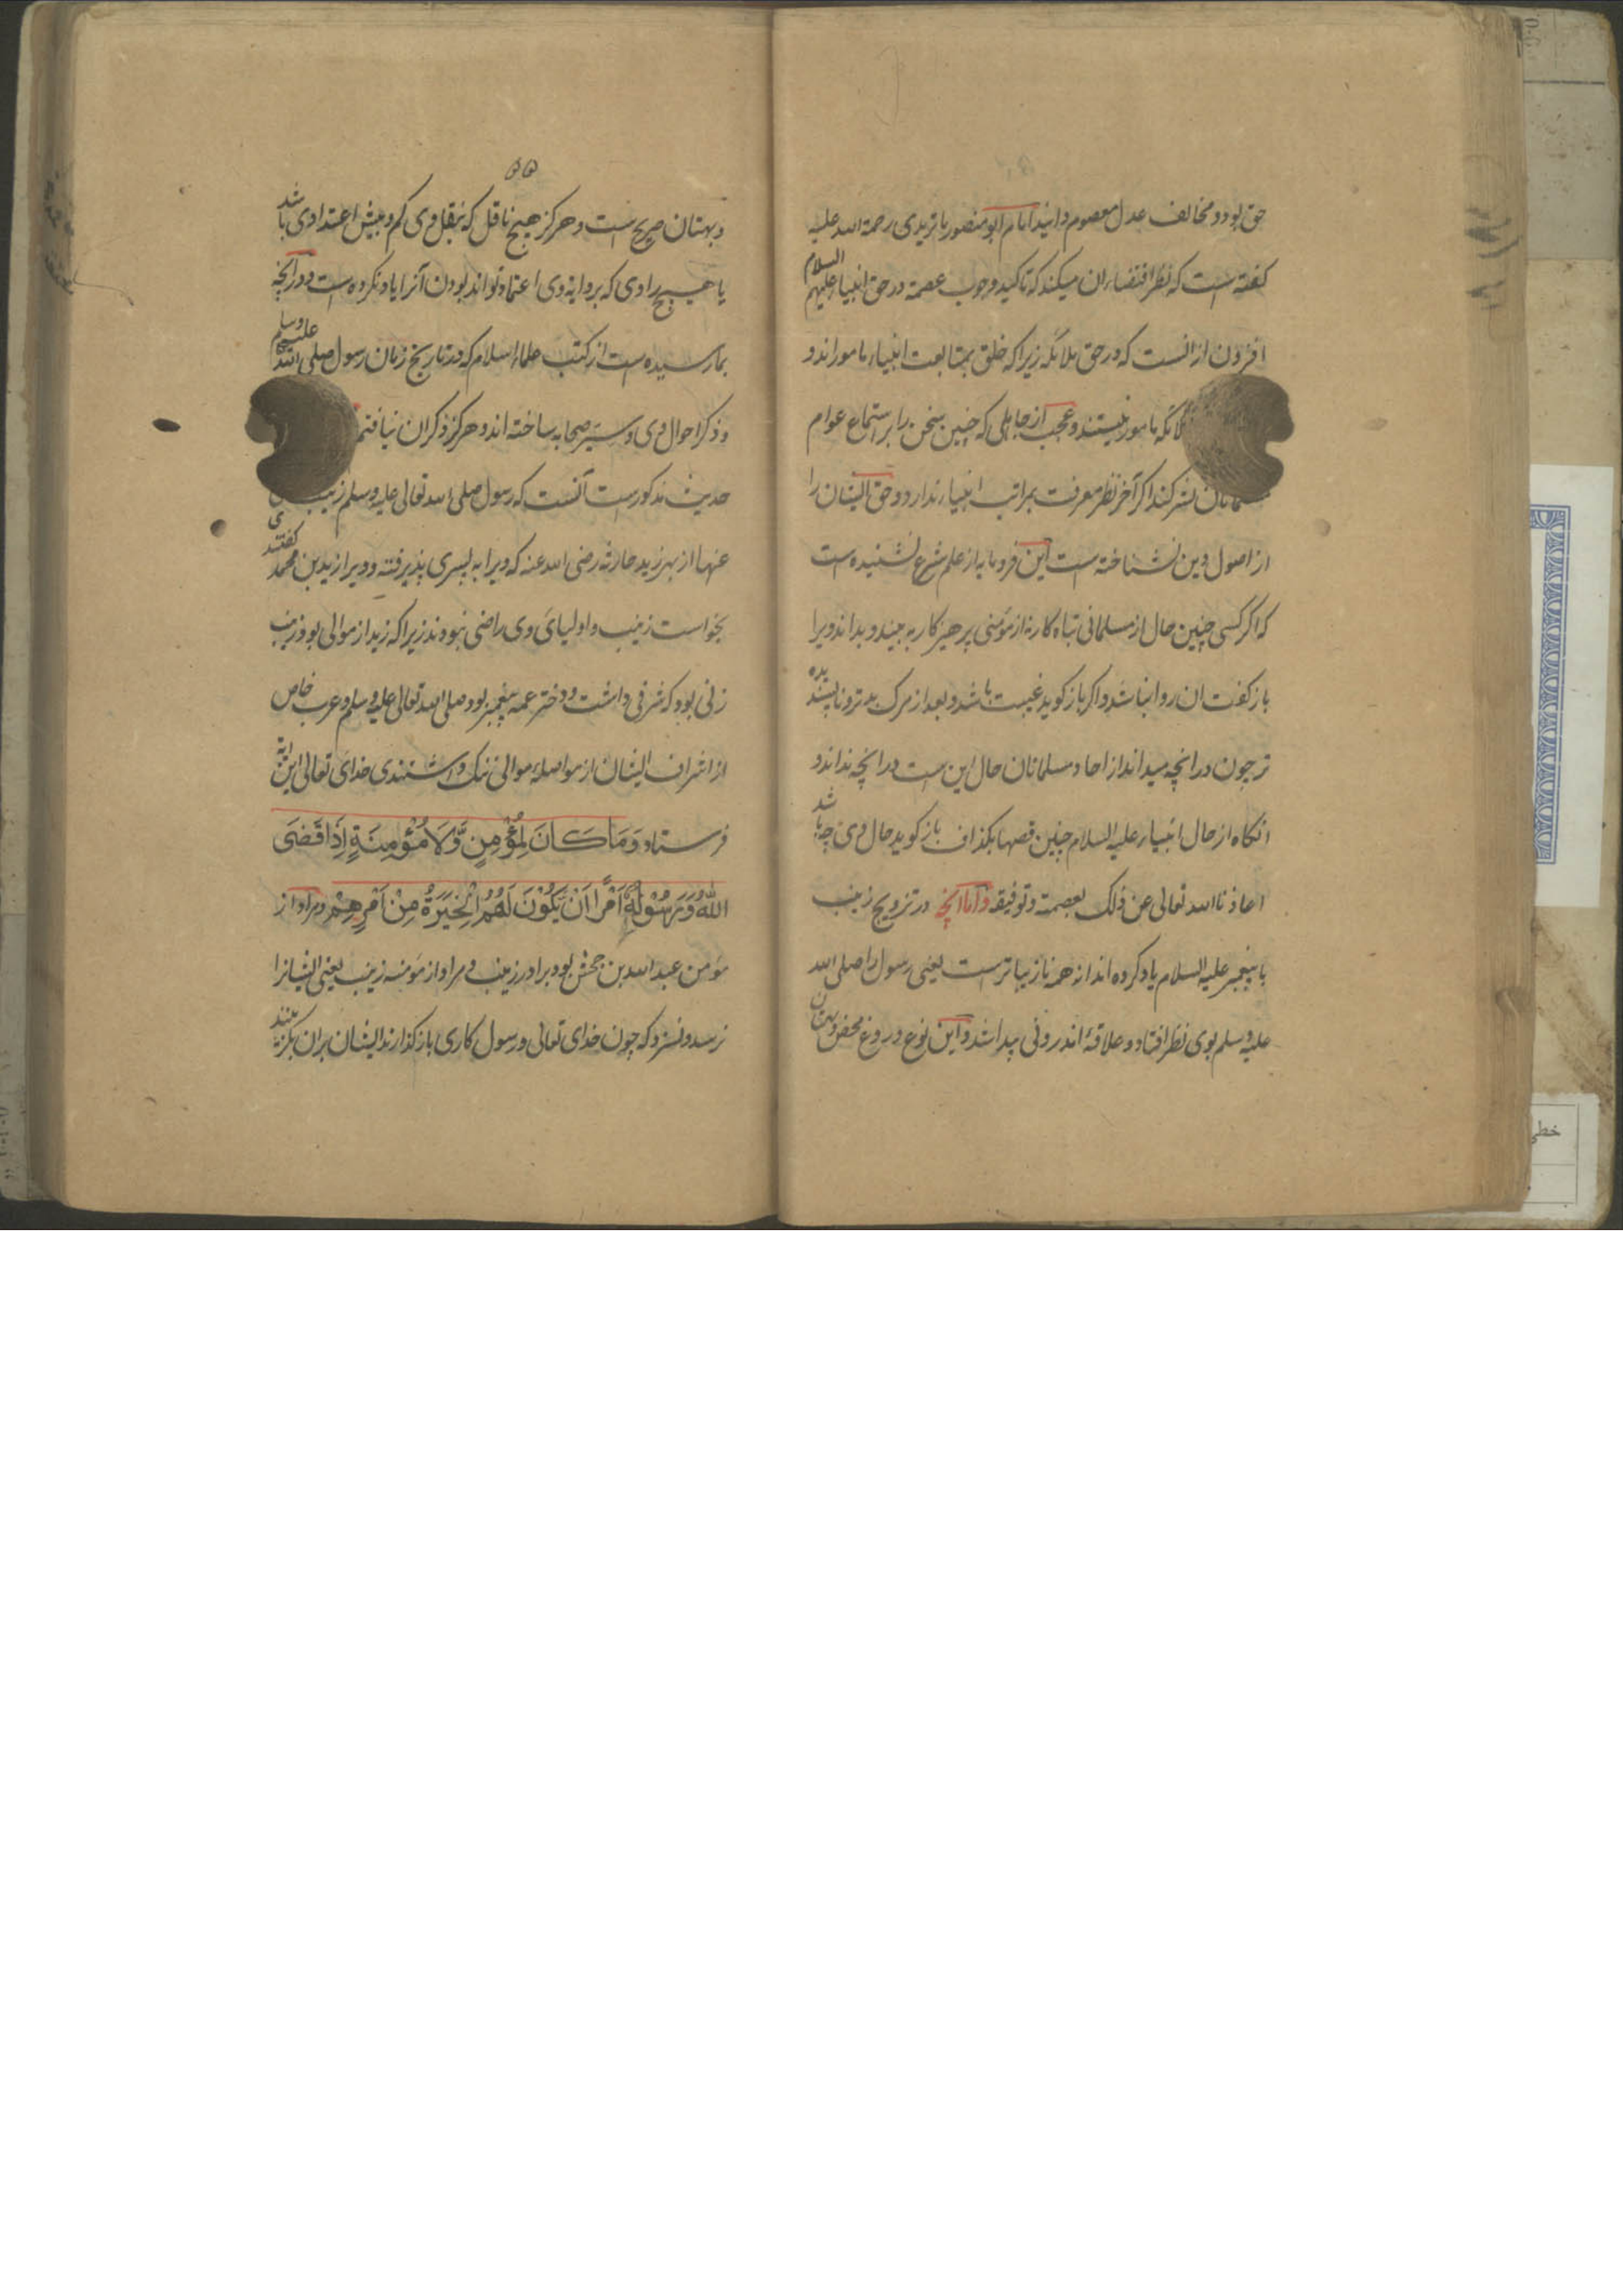 حق بود و مخالف عدل معصوم دانید امام ابو منصور ماتریدی رحمة الله علیه
کفته است که نظر اقتضاء ان میکند که تاکید وجوب عصمة در حق انبیاء علیهم السلام
افزون از انست که در حق ملائکه زیرا که خلق بمتابعت انبیاء ماموراند و
ملائکه مامور نیستند و عجب از جاهلی که چنین سخن را بر استماع عوام
مسلمانان نشر کند اکر آخر نظر معرفت بمراتب انبیاء ندارد و حق ایشان را
از اصول دین نشناخته است این فرومایه از علم شرع نشنیده است
که اکر کسی چنین حال از مسلمانی تباه کار نه از مؤمنی پرهیزکار به بیند و بداند ویرا
باز کفت ان روا نباشد و اکر باز کوید غیبت باشد و بعد از مرک بدتر و ناپسندیده
تر چون در انچه میداند از احاد مسلمانان حال این است در انچه نداند و
انکاه از حال انبیاء علیه السلام چنین قصها بکذاف باز کوید حال وی چه باشد
اعاذنا الله تعالی عن ذلک بعصمته و توفیقه و اما انچه در تزویج زینب
با پیغمبر علیه السلام یاد کرده اند از همه نازیباتر است یعنی رسول را صلی الله
علیه وسلم بوی نظر افتاد و علاقهٔ اندرونی پیدا شد و این نوع دروغ محض و بهتان
۵۵
و بهتان صریح است و هرکز هیچ ناقل که بنقل وی کم و بیش اعتدادی باشد
یا هیچ راوی که بروایة وی اعتماد تواند بودن آنرا یاد نکرده است و در انچه
بما رسیده است از کتب علماء اسلام که در تاریخ زمان رسول صلی الله علیه وسلم
و ذکر احوال وی و سیر صحابه ساخته اند و هرکز ذکر ان نیافتم
حدیث مذکور است آنست که رسول صلی الله تعالی علیه وسلم زینب
عنها از بهر زید حارثه رضی الله عنه که ویرا به پسری پذیرفته و ویرا زید بن محمد کفتندی
بخواست زینب و اولیای وی راضی نبودند زیرا که زید از موالی بود و زینب
زنی بود که شرفی داشت و دختر عمه پیغمبر بود صلی الله تعالی علیه وسلم و عرب خاص
از اشراف ایشان از مواصلهٔ موالی ننک داشتندی خدای تعالی این ایة
فرستاد وَمَا كَانَ لِمُؤْمِنٍ وَّلَا مُؤْمِنَةٍ اِذَا قَضَى
اللّٰهُ وَرَسُوْلُهٗٓ اَمْرًا اَنْ يَّكُوْنَ لَهُمُ الْخِيَرَةُ مِنْ اَمْرِهِمْ و مراد از
مؤمن عبد الله بن جحش بود برادر زینب و مراد از مؤمنه زینب یعنی ایشانرا
نرسد و نسزد که چون خدای تعالی و رسول کاری باز کذارند ایشان بران بکزینند
خطی